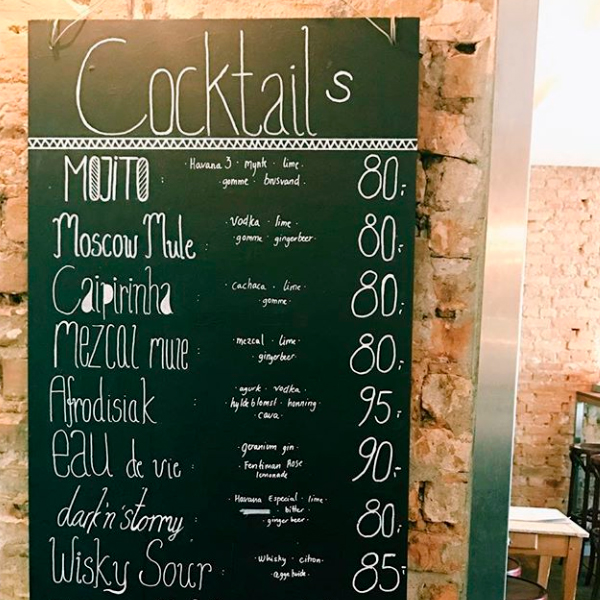 Cocktails
MOJITO : Havana 3 · mynte · lime · 80,-
gomme · brusvand ·
Moscow Mule : · Vodka · lime · 80,-
· gomme · gingerbeer ·
Caipirinha : · cachaca · lime · 80,-
· gomme ·
Mezcal mule : · mezcal · lime · 80,-
· gingerbeer ·
Afrodisiak : · agurk · vodka · 95,-
· hyldeblomst · honning ·
· cava ·
eau de vie : · Geranium gin · 90,-
· Fentiman Rose
lemonade
dark'n'stormy : · Havana Especial · lime · 80,-
· bitter
· ginger beer ·
Wisky Sour : · Whisky · citron · 85,-
· æggehvide ·